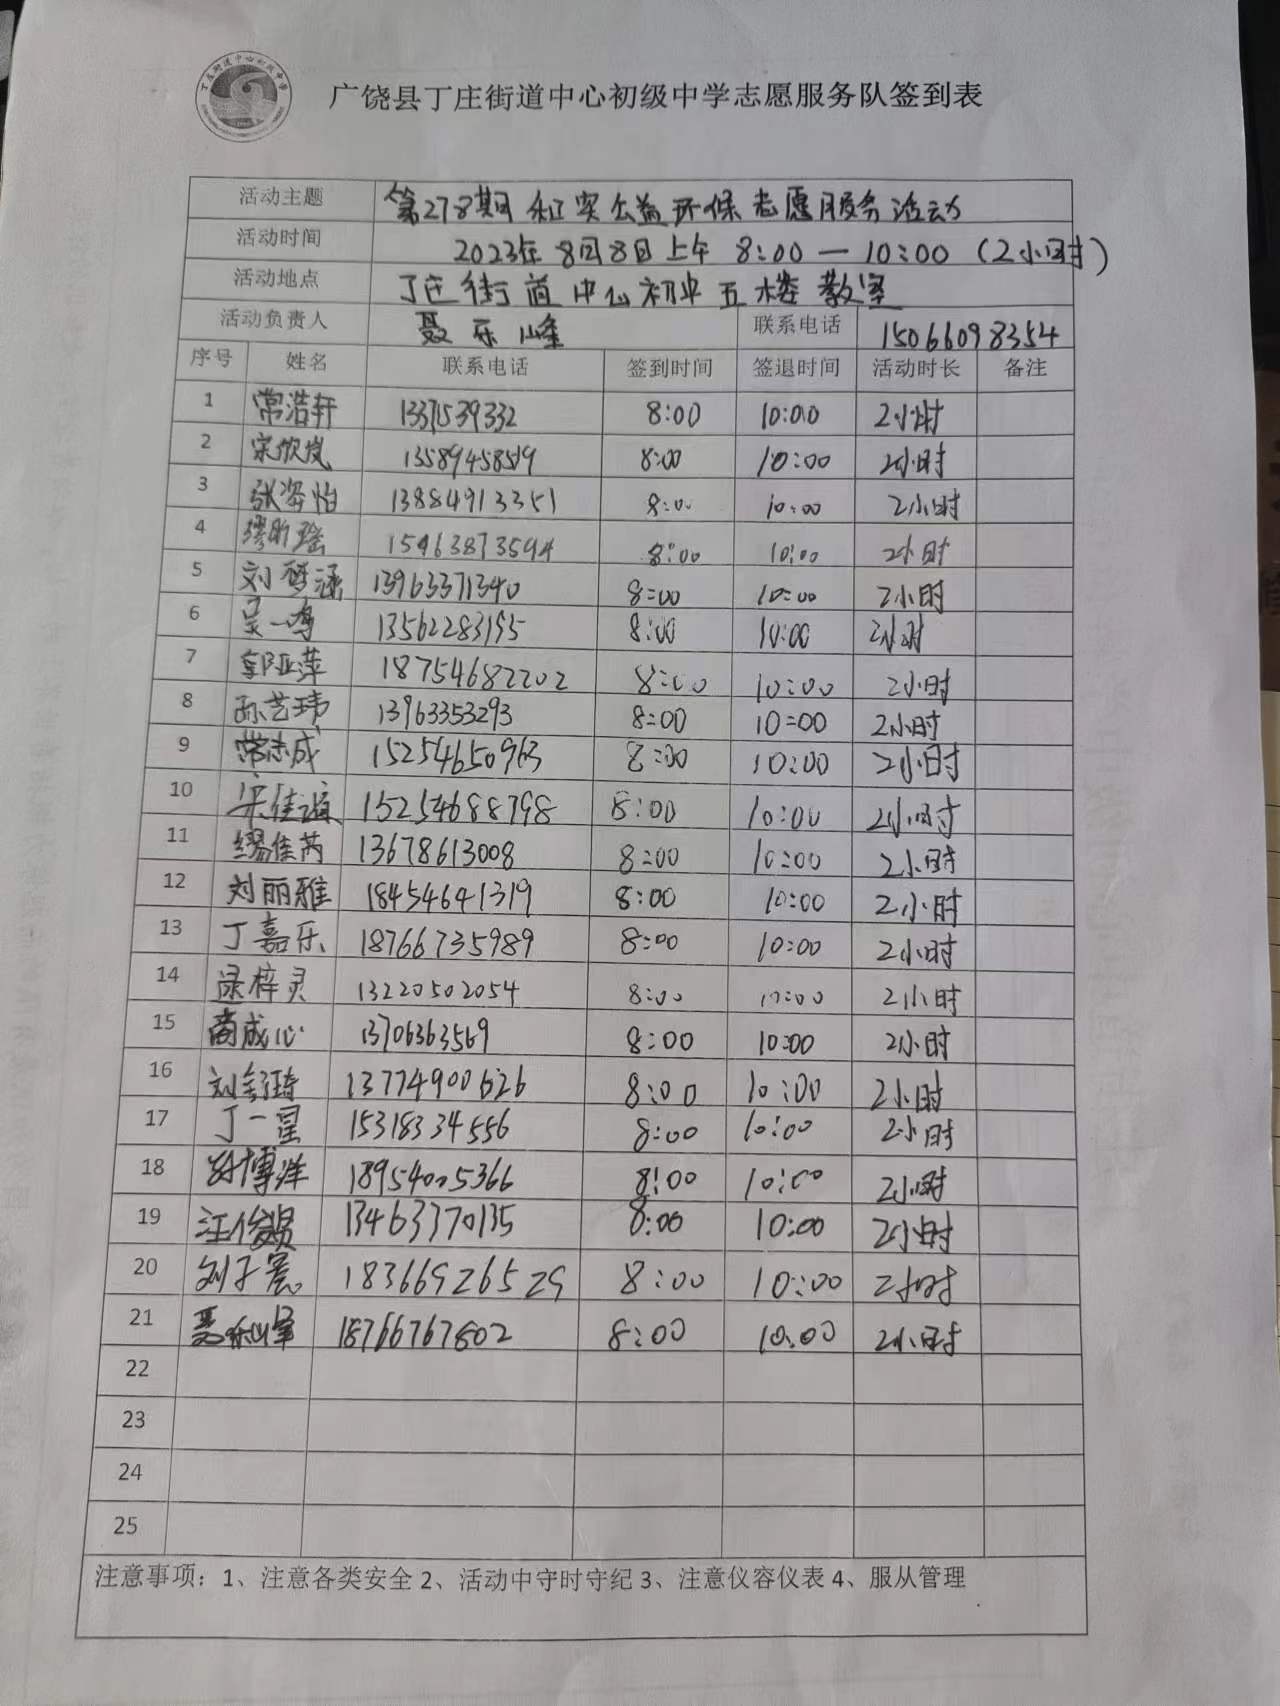 广饶县丁庄街道中心初级中学志愿服务队签到表
活动主题 第278期红实公益环保志愿服务活动
活动时间 2023年8月8日上午 8:00—10:00（2小时）
活动地点 丁庄街道中心初中五楼教室
活动负责人 聂乐峰 联系电话 15066098354
序号 姓名 联系电话 签到时间 签退时间 活动时长 备注
1 常浩轩 1337539332 8:00 10:00 2小时
2 宋欣岚 13589458519 8:00 10:00 2小时
3 张姿怡 13884913351 8:00 10:00 2小时
4 缪昕瑶 15463873594 8:00 10:00 2小时
5 刘梦涵 13963371340 8:00 10:00 2小时
6 吴一鸣 13562283195 8:00 10:00 2小时
7 郭亚萍 18754682202 8:00 10:00 2小时
8 孙艺玮 13963353293 8:00 10:00 2小时
9 常志成 15254650963 8:00 10:00 2小时
10 宋佳谊 15254688798 8:00 10:00 2小时
11 缪佳芮 13678613008 8:00 10:00 2小时
12 刘丽雅 18454641319 8:00 10:00 2小时
13 丁嘉乐 18766735989 8:00 10:00 2小时
14 梓灵 13220502054 8:00 10:00 2小时
15 商成心 13706363569 8:00 10:00 2小时
16 13774900626 8:00 10:00 2小时
17 丁一星 15318334556 8:00 10:00 2小时
18 博洋 18954005366 8:00 10:00 2小时
19 汪俊贤 13463370135 8:00 10:00 2小时
20 刘子宸 18366926529 8:00 10:00 2小时
21 聂乐峰 18766767802 8:00 10:00 2小时
22
23
24
25
注意事项：1、注意各类安全 2、活动中守时守纪 3、注意仪容仪表 4、服从管理